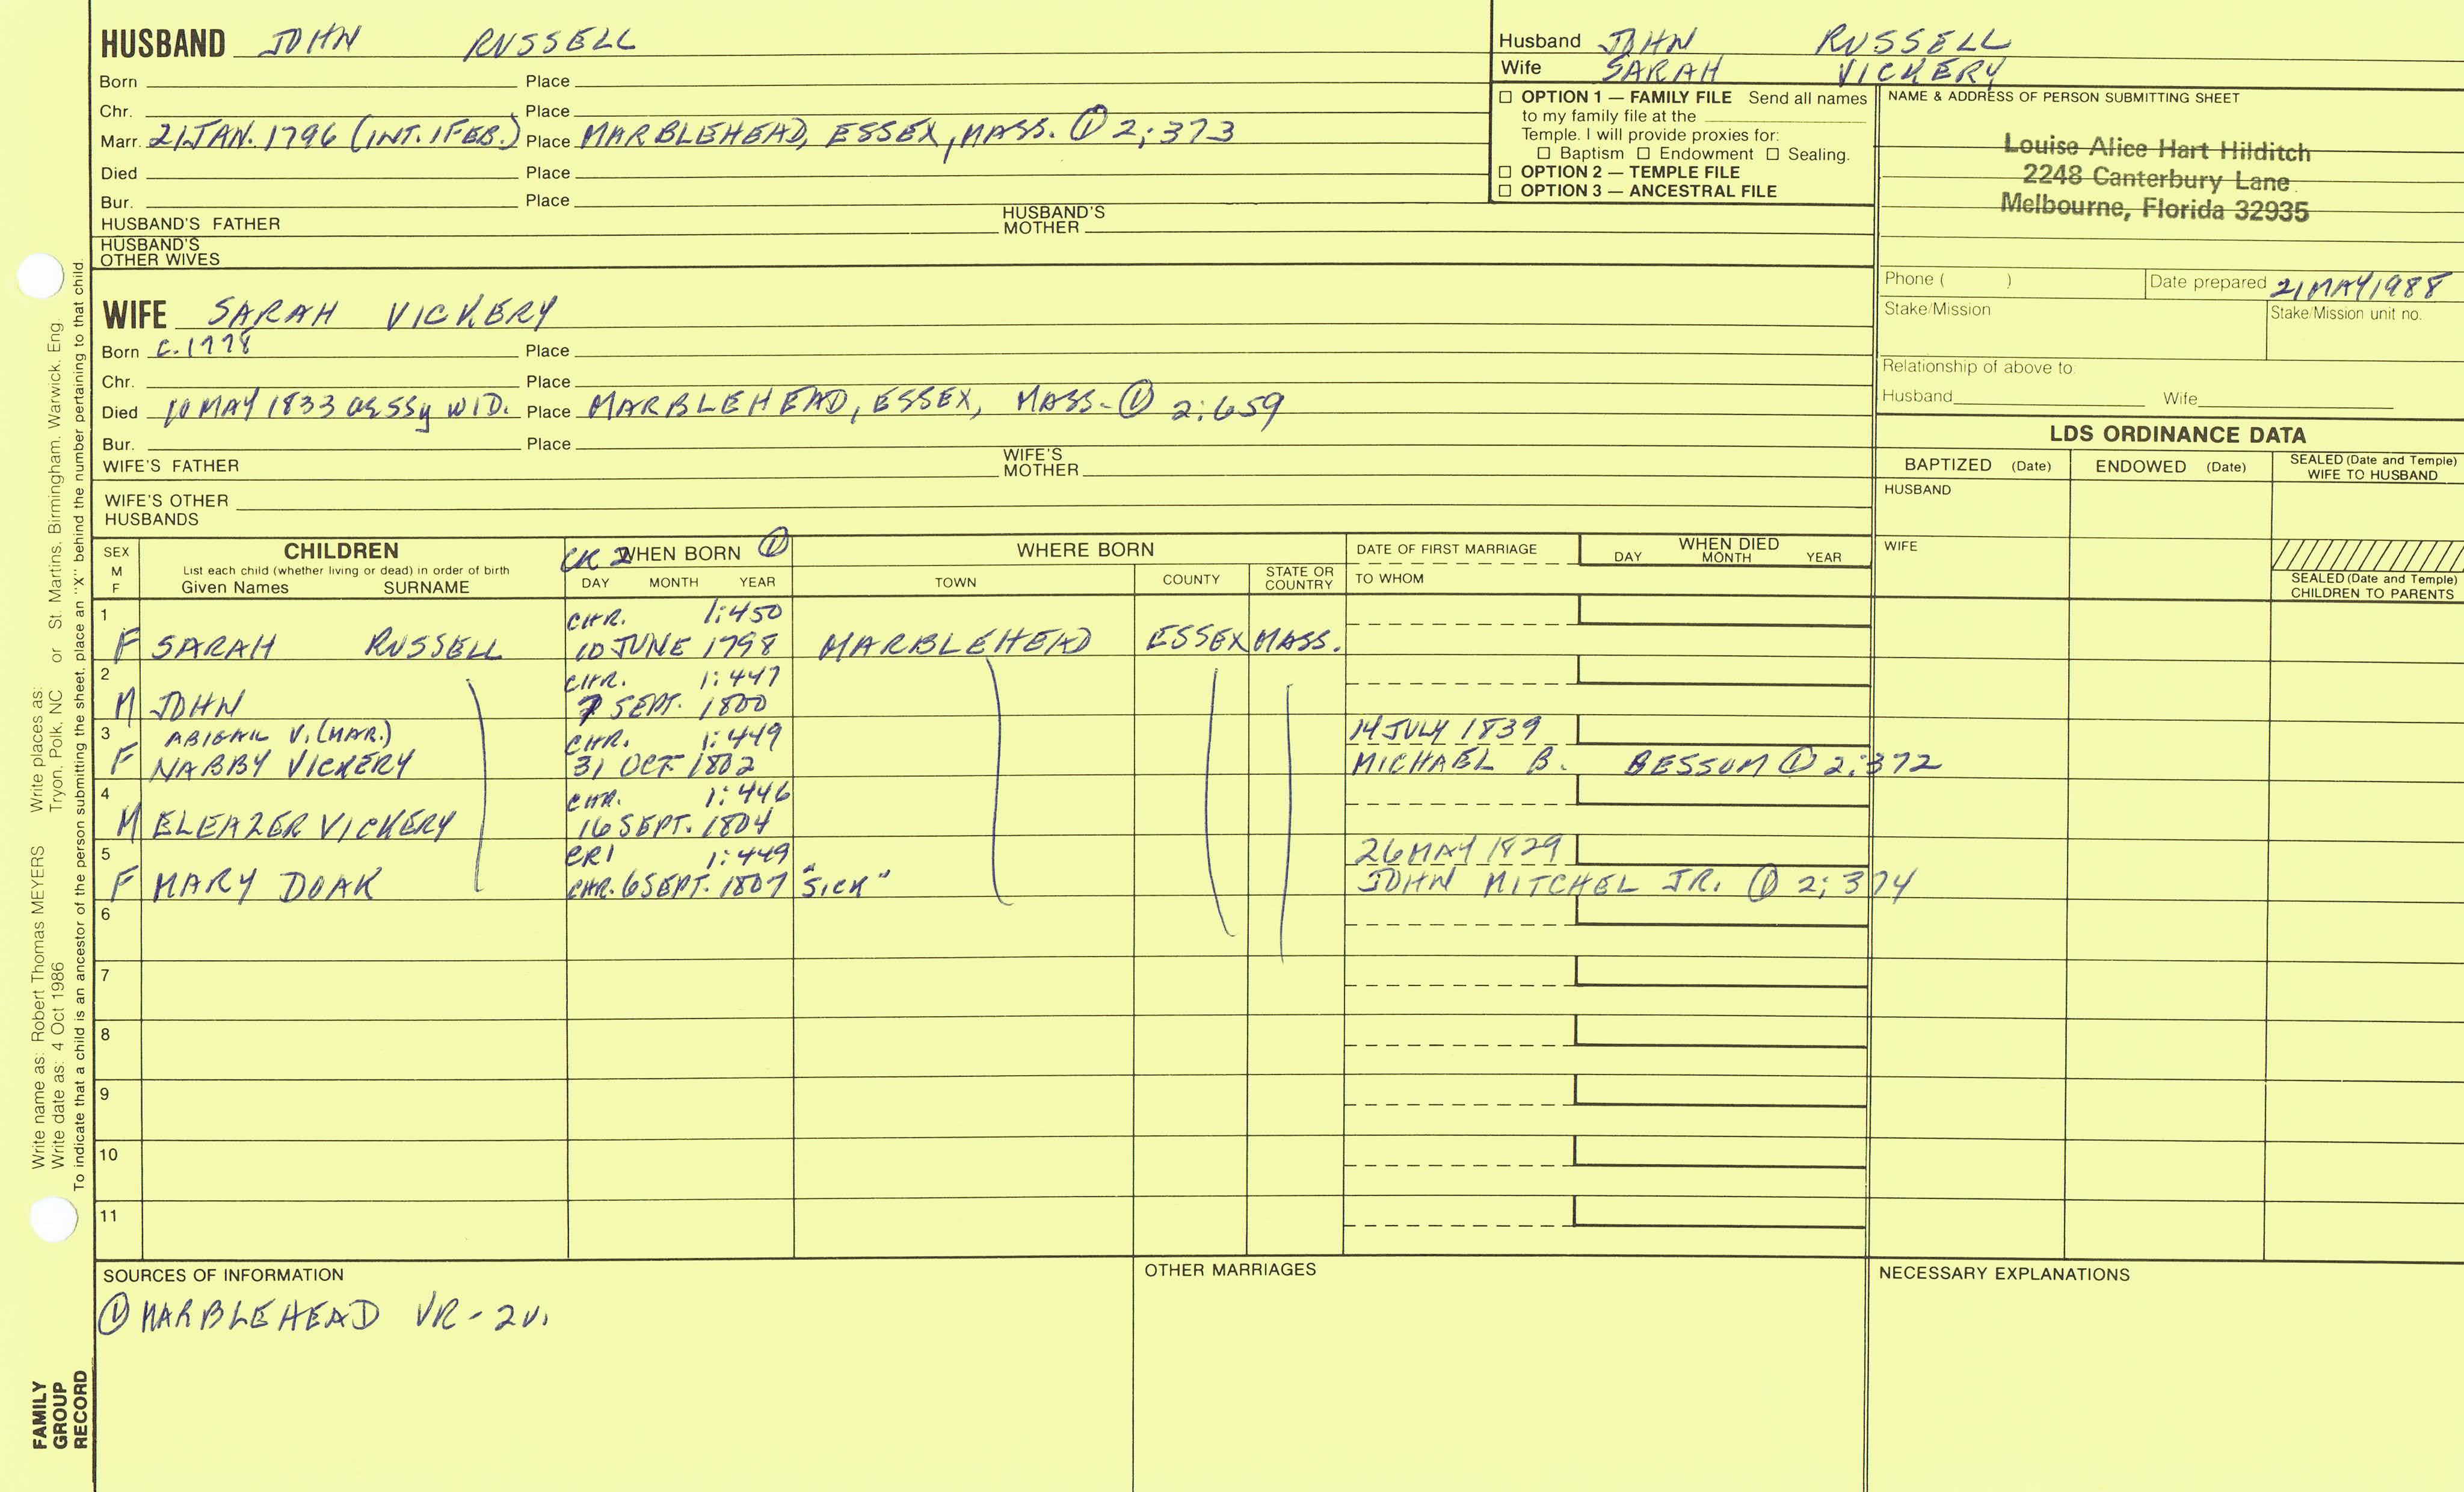 HUSBAND JOHN RUSSELL
Born Place
Chr. Place
Marr. 21 JAN. 1796 (INT. 1 FEB.) Place MARBLEHEAD, ESSEX, MASS. ① 2:373
Died Place
Bur. Place
HUSBAND'S FATHER HUSBAND'S MOTHER
HUSBAND'S OTHER WIVES
WIFE SARAH VICKERY
Born C. 1778 Place
Chr. Place
Died 10 MAY 1833 ae 55y WID. Place MARBLEHEAD, ESSEX, MASS. ① 2:659
Bur. Place
WIFE'S FATHER WIFE'S MOTHER
WIFE'S OTHER HUSBANDS
Husband JOHN RUSSELL
Wife SARAH VICKERY
☐ OPTION 1 — FAMILY FILE Send all names
to my family file at the
Temple. I will provide proxies for:
☐ Baptism ☐ Endowment ☐ Sealing.
☐ OPTION 2 — TEMPLE FILE
☐ OPTION 3 — ANCESTRAL FILE
NAME & ADDRESS OF PERSON SUBMITTING SHEET
Louise Alice Hart Hilditch
2248 Canterbury Lane
Melbourne, Florida 32935
Phone ( ) Date prepared 21 MAY 1988
Stake/Mission Stake/Mission unit no.
Relationship of above to:
Husband Wife
LDS ORDINANCE DATA
BAPTIZED (Date) ENDOWED (Date) SEALED (Date and Temple) WIFE TO HUSBAND
HUSBAND
WIFE
SEALED (Date and Temple) CHILDREN TO PARENTS
SEX M F
CHILDREN
List each child (whether living or dead) in order of birth
Given Names SURNAME
CR 2 WHEN BORN ①
DAY MONTH YEAR
WHERE BORN
TOWN COUNTY STATE OR COUNTRY
DATE OF FIRST MARRIAGE
TO WHOM
WHEN DIED
DAY MONTH YEAR
1 CHR. 1:450
F SARAH RUSSELL 10 JUNE 1798 MARBLEHEAD ESSEX MASS.
2 CHR. 1:447
M JOHN 7 SEPT. 1800
3 ABIGAIL V. (MAR.) CHR. 1:449 14 JULY 1839
F NABBY VICKERY 31 OCT 1802 MICHAEL B. BESSOM ① 2:372
4 CHR. 1:446
M ELEAZER VICKERY 16 SEPT. 1804
5 CR1 1:449 26 MAY 1829
F MARY DOAK CHR. 6 SEPT. 1807 "SICK" JOHN MITCHEL JR. ① 2:374
6
7
8
9
10
11
SOURCES OF INFORMATION
① MARBLEHEAD VR - 2V.
OTHER MARRIAGES
NECESSARY EXPLANATIONS
Write name as: Robert Thomas MEYERS Write places as:
Write date as: 4 Oct 1986 Tryon, Polk, NC or St. Martins, Birmingham, Warwick, Eng.
To indicate that a child is an ancestor of the person submitting the sheet, place an "X" behind the number pertaining to that child.
FAMILY
GROUP
RECORD